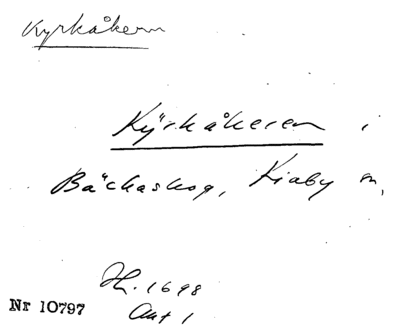 Kyrkåkern
Kyrkåkeren i
Bäckaskog, Kiaby sn,
Hl. 1698
Akt 1
Nr 10797